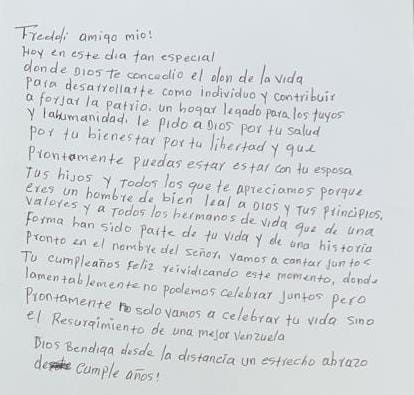 Freddi amigo mio!
Hoy en este dia tan especial
donde Dios te concedio el don de la vida
para desarrollarte como individuo y contribuir
a forjar la patria, un hogar legado para los tuyos
y la humanidad, le pido a Dios por tu salud
por tu bienestar por tu libertad y que
Prontamente puedas estar estar con tu esposa
Tus hijos y Todos los que te apreciamos porque
eres un hombre de bien leal a Dios y Tus principios,
valores y a Todos los hermanos de vida que de una
forma han sido parte de tu vida y de una historia
Pronto en el nombre del señor, vamos a cantar juntos
Tu cumpleaños feliz reividicando este momento, donde
lamentablemente no podemos celebrar Juntos pero
Prontamente no solo vamos a celebrar tu vida sino
el Resurgimiento de una mejor Venzuela
Dios Bendiga desde la distancia un estrecho abrazo
de cumple años!